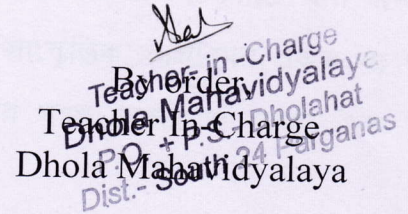 By order,
Teacher In-Charge
Dhola Mahavidyalaya
Teacher- in -Charge
Dhola Mahavidyalaya
P.O. + P.S.- Dholahat
Dist.- South 24 Parganas